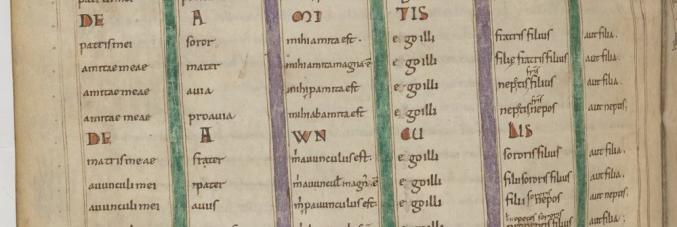 DE A MI TIS
patris mei soror mihi amita est. ego illi fratris filius aut filia.
amitae meae mater mihi amita magna ē ego illi filię fratris filius aut filia.
amitae meae auia mihi p amita est ego illi neptis fr̄is filius aut filia.
amitae meae proauia mihi abamita est ego illi neptis fr̄is nepos aut neptis.
DE A WN CU LIS
matris meae frater m̍ auunculus est. ego illi sororis filius aut filia.
auunculi mei pater m̍ auuncul magn̄ ē ego illi filii sororis filius aut filia.
auunculi mei auus m̍ p auunculus est ego illi filii nepos aut neptis.
aut filia.